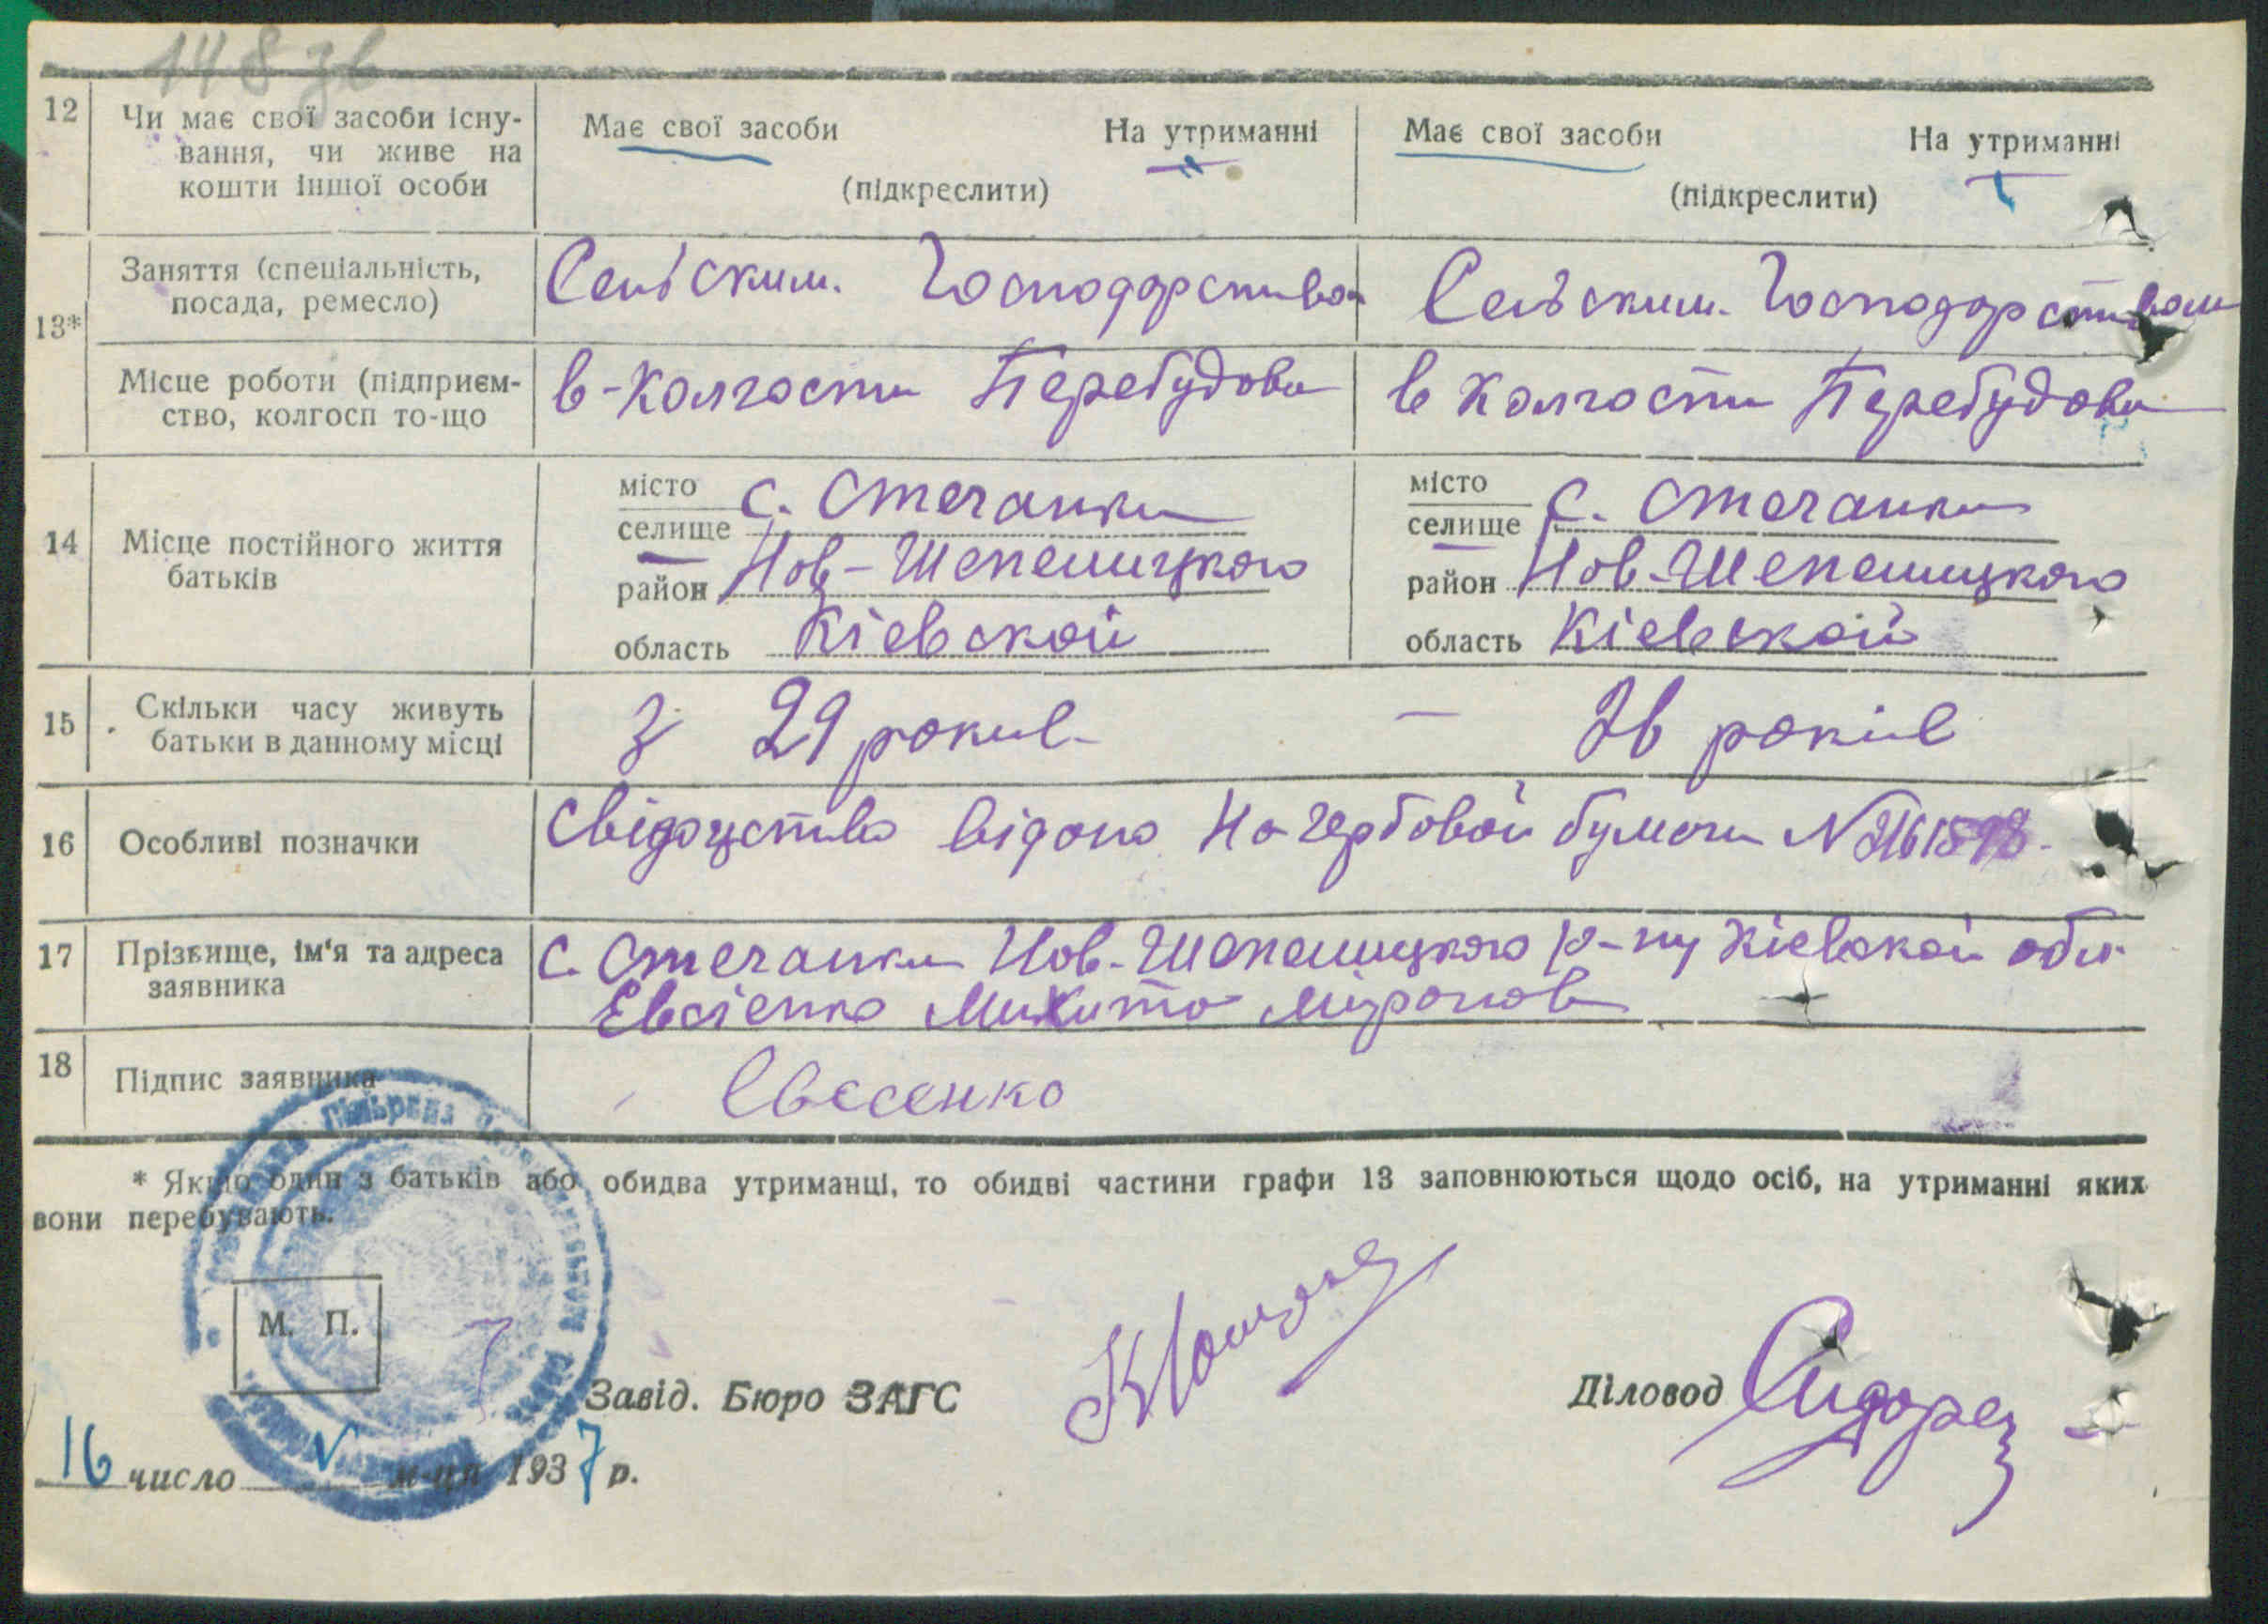 148 зв
12 Чи має свої засоби існу- Має свої засоби На утриманні Має свої засоби На утриманні
вання, чи живе на
кошти іншої особи (підкреслити) (підкреслити)
Заняття (спеціальність, Сельским. Господарством Сельским. Господарством
посада, ремесло)
13*
Місце роботи (підприєм- в-Колгоспи Перебудова в Колгоспи Перебудова
ство, колгосп то-що
місто с. Стечанки місто с. Стечанки
селище селище
14 Місце постійного життя район Нов-Шепелицкого район Нов-Шепелицкого
батьків
область Кіевской область Кіевской
15 Скільки часу живуть З 29 рокив - 26 років
батьки в данному місці
16 Особливі позначки Свідоцство відано На гербовой бумаги №
17 Прізвище, ім'я та адреса с. Стечанки Нов-Шепелицкого р-ну Кіевской обл.
заявника Евсіенко Микито Міронов
18 Підпис заявника Евсеенко
* Якщо один з батьків або обидва утриманці, то обидві частини графи 13 заповнюються щодо осіб, на утриманні яких
вони перебувають.
М. П.
Завід. Бюро ЗАГС Діловод
16 число V м-ця 1937 р.